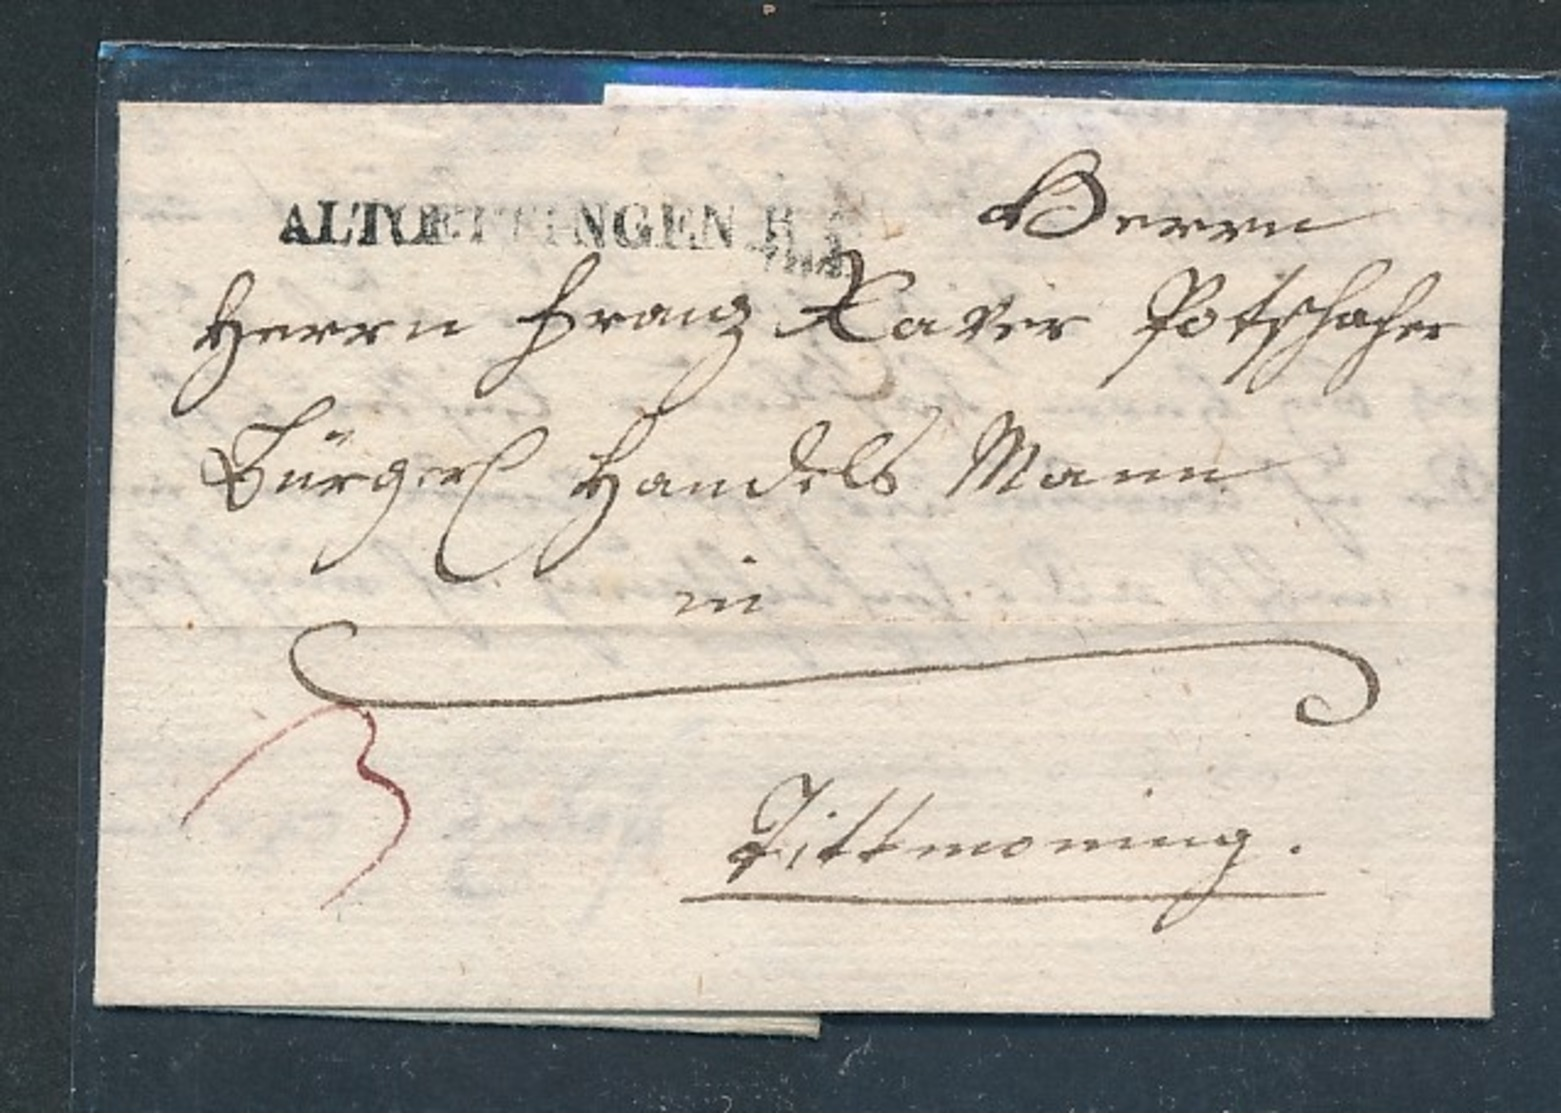 ALTOETTINGEN R. 4
Herrn
Herrn Franz Xaver
Bürgerl Handels Mann
in
3
Tittmoning.